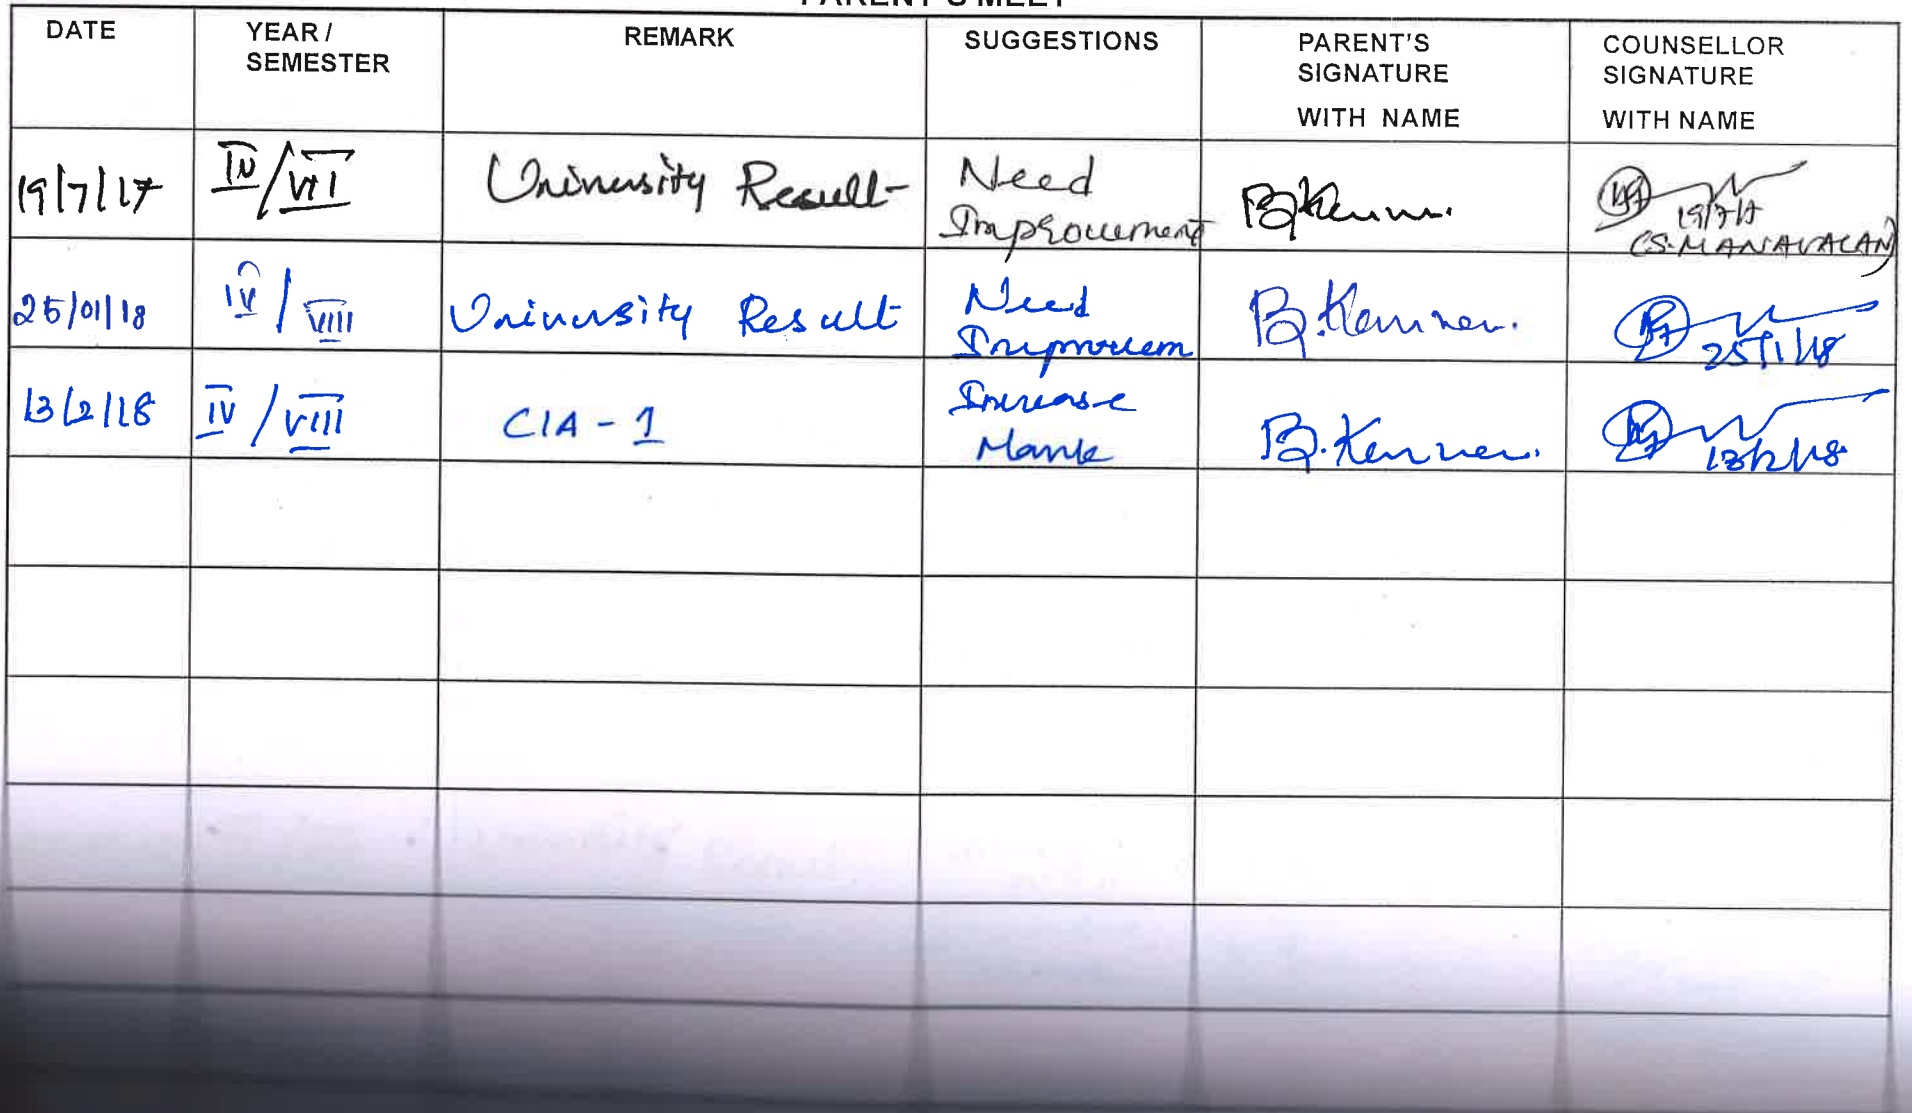 PARENT'S MEET
DATE YEAR / SEMESTER REMARK SUGGESTIONS PARENT'S SIGNATURE WITH NAME COUNSELLOR SIGNATURE WITH NAME
19/7/17 IV/VII University Result Need Improvement B.Kannan. 19/7/17 (S.MANAVALAN)
25/01/18 IV/VIII University Result Need Improvem B.Kannan. 25/1/18
13/2/18 IV/VIII CIA-1 Increase Mark B.Kannan. 13/2/18